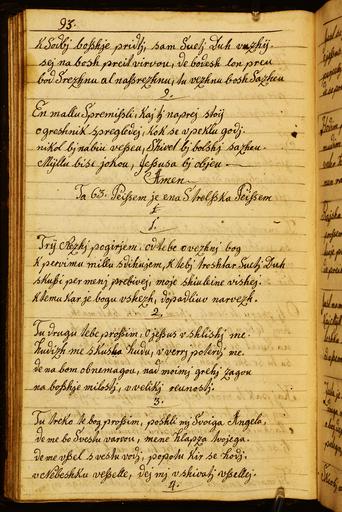 93.
k Sodbj boshje pridtj, sam Suetj Duh vuzhij.
sej na bosh preul virvou, de bodesh lon preu
bod Srezhnu al nassrezhnu, tu vezhnu bosh Sazheu
9.
En mallu Spremisli, kaj tj naprej stoij
o greshnik spregledej, kok se vpeklu godj.
nikol tj nabiu vesseu, Shivot bj bolshj sazheu.
Mylltu bi se jokou, Jesusa bj objeu.
Amen
Ta 63. Peissem je ena Strelska Peissem
1.
Try Rezhj pogirjem od tebe o vezhnj bog
k pervimu milltu sdihujem, k tebj troshtar Suetj Duh
skusi per menj prebivej, moje shiuleine vishej.
k temu kar je bogu vshezh, dopadliuv narvezh.
2.
Tu drugu tebe prosim, o jesus vsklishj me.
hudizh me skusha hudu, v verrj poterdj me.
de na bom obnemagou, nad moimj grehj zagou
na boshje milostj, v velikj reunostj.
3.
Tu treko te bog prosim, poshli mj Svoiga Angela,
de me be Svestu varvou, mene hlapza tvojega.
de me vsel svestu vodj, popotu kir se hodj.
v Nebeshku vesselle, dej mj vshivatj vsselej.
4.